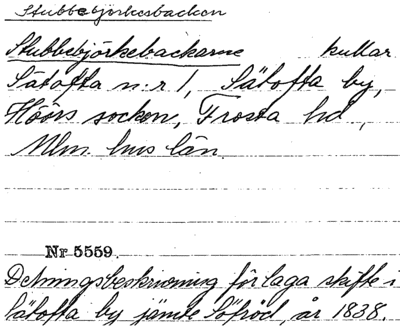 Stubbebjörkesbacken
Stubbebjörkebackarne kullar
Sätofta n:r 1, Sätofta by,
Höörs socken, Frosta hd,
Mlm. hus län.
Nr 5559.
Delningsbeskrivning för laga skifte i
Sätofta by jämte Löfröd, år 1838.